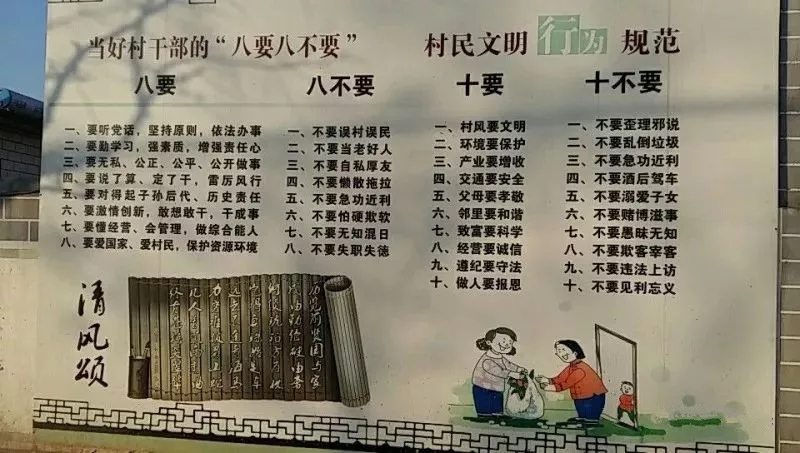 当好村干部的“八要八不要”
八要
一、要听党话，坚持原则，依法办事
二、要勤学习，强素质，增强责任心
三、要无私、公正、公平、公开做事
四、要说了算、定了干，雷厉风行
五、要对得起子孙后代、历史责任
六、要激情创新，敢想敢干，干成事
七、要懂经营、会管理，做综合能人
八、要爱国家、爱村民，保护资源环境
八不要
一、不要误村误民
二、不要当老好人
三、不要自私厚友
四、不要懒散拖拉
五、不要急功近利
六、不要怕硬欺软
七、不要无知混日
八、不要失职失德
村民文明行为规范
十要
一、村风要文明
二、环境要保护
三、产业要增收
四、交通要安全
五、父母要孝敬
六、邻里要和谐
七、致富要科学
八、经营要诚信
九、遵纪要守法
十、做人要报恩
十不要
一、不要歪理邪说
二、不要乱倒垃圾
三、不要急功近利
四、不要酒后驾车
五、不要溺爱子女
六、不要赌博滋事
七、不要愚昧无知
八、不要欺客宰客
九、不要违法上访
十、不要见利忘义
清风颂